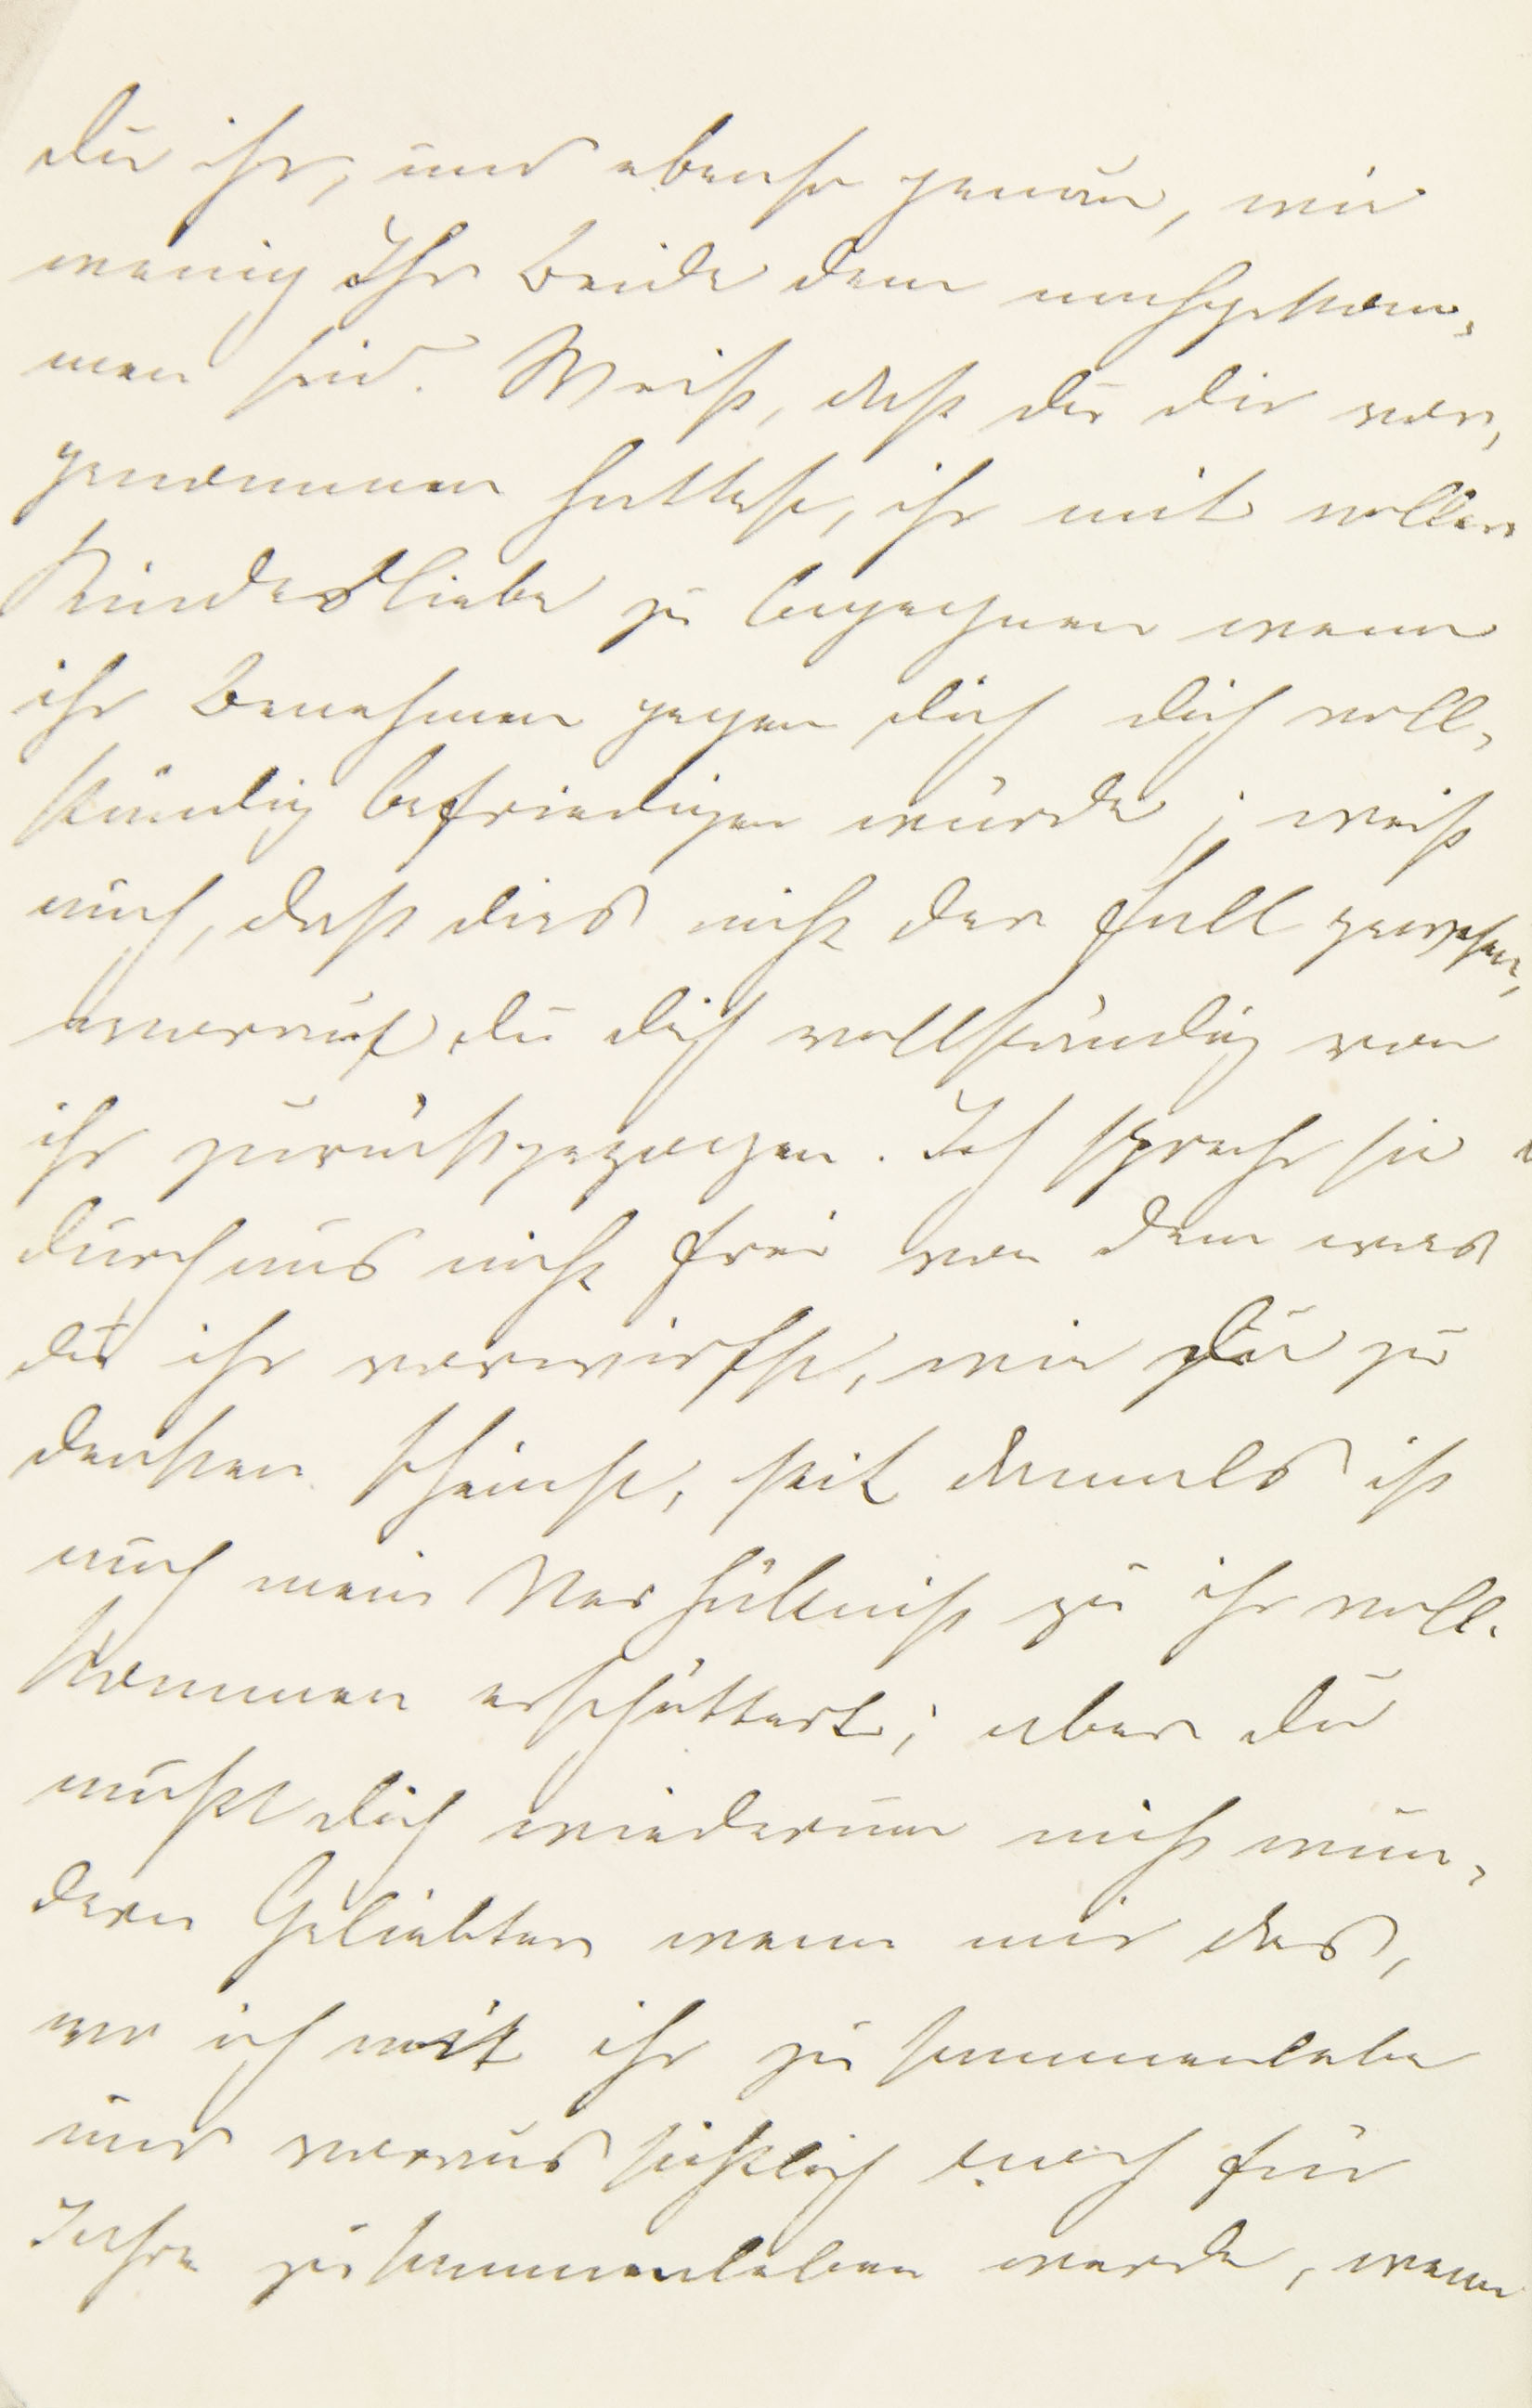 du ihr, und ebenso genau, wie
wenig Ihr Beide dem nachgekom-
men seid. Weiß, daß du dir vor-
genommen hattest, ihr mit voller
Kindesliebe zu begegnen wenn
ihr Benehmen gegen dich dich voll-
ständig befriedigen würde; weiß
auch, daß dies nicht der Fall gewesen,
worauf du dich vollständig von
ihr zurückgezogen. Ich spreche sie
durchaus nicht frei von dem was
du ihr vorwirfst, wie du zu
denken scheinst, seit damals ist
auch mein Verhältniß zu ihr voll-
kommen erschüttert; aber du
mußt dich wiederum nicht wun-
dern Geliebter wenn mir das,
wo ich mit ihr zusammenlebe
und voraussichtlich noch für
Jahre zusammenleben werde, wenn